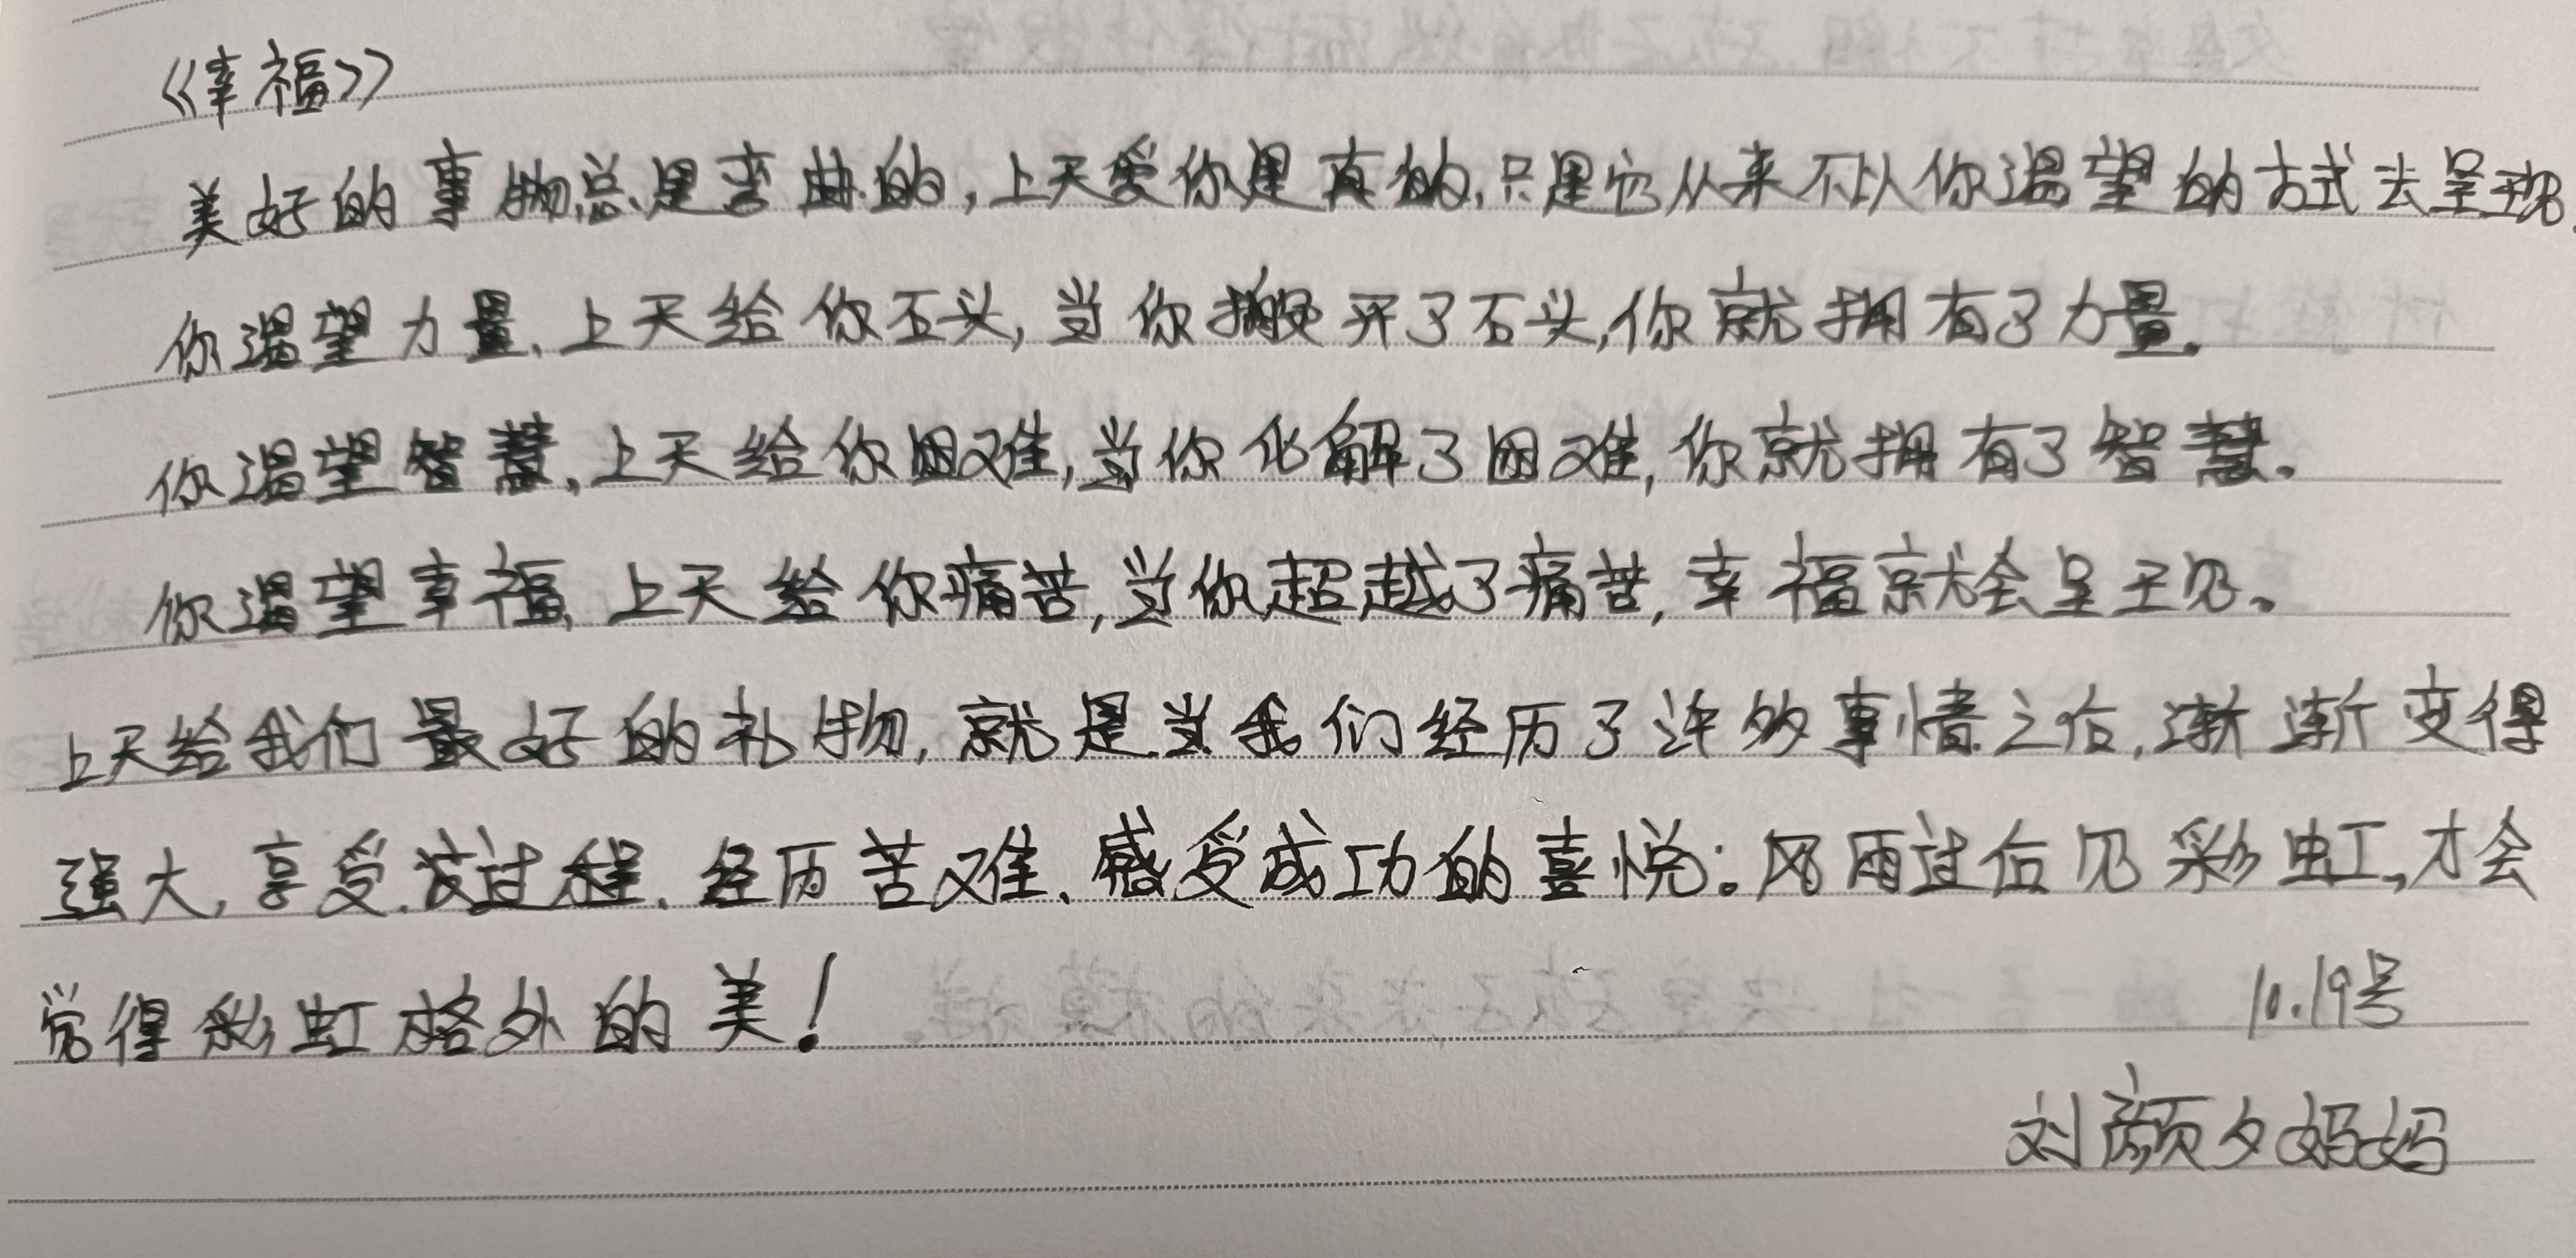 《幸福》
美好的事物总是弯曲的,上天爱你是真的,只是它从来不以你渴望的方式去呈现.
你渴望力量,上天给你石头,当你搬开了石头,你就拥有了力量。
你渴望智慧,上天给你困难,当你化解了困难,你就拥有了智慧。
你渴望幸福,上天给你痛苦,当你超越了痛苦,幸福就会呈现。
上天给我们最好的礼物,就是当我们经历了许多事情之后,渐渐变得
强大,享受过程、经历苦难、感受成功的喜悦;风雨过后见彩虹,才会
觉得彩虹格外的美!
10.19号
刘颜夕妈妈